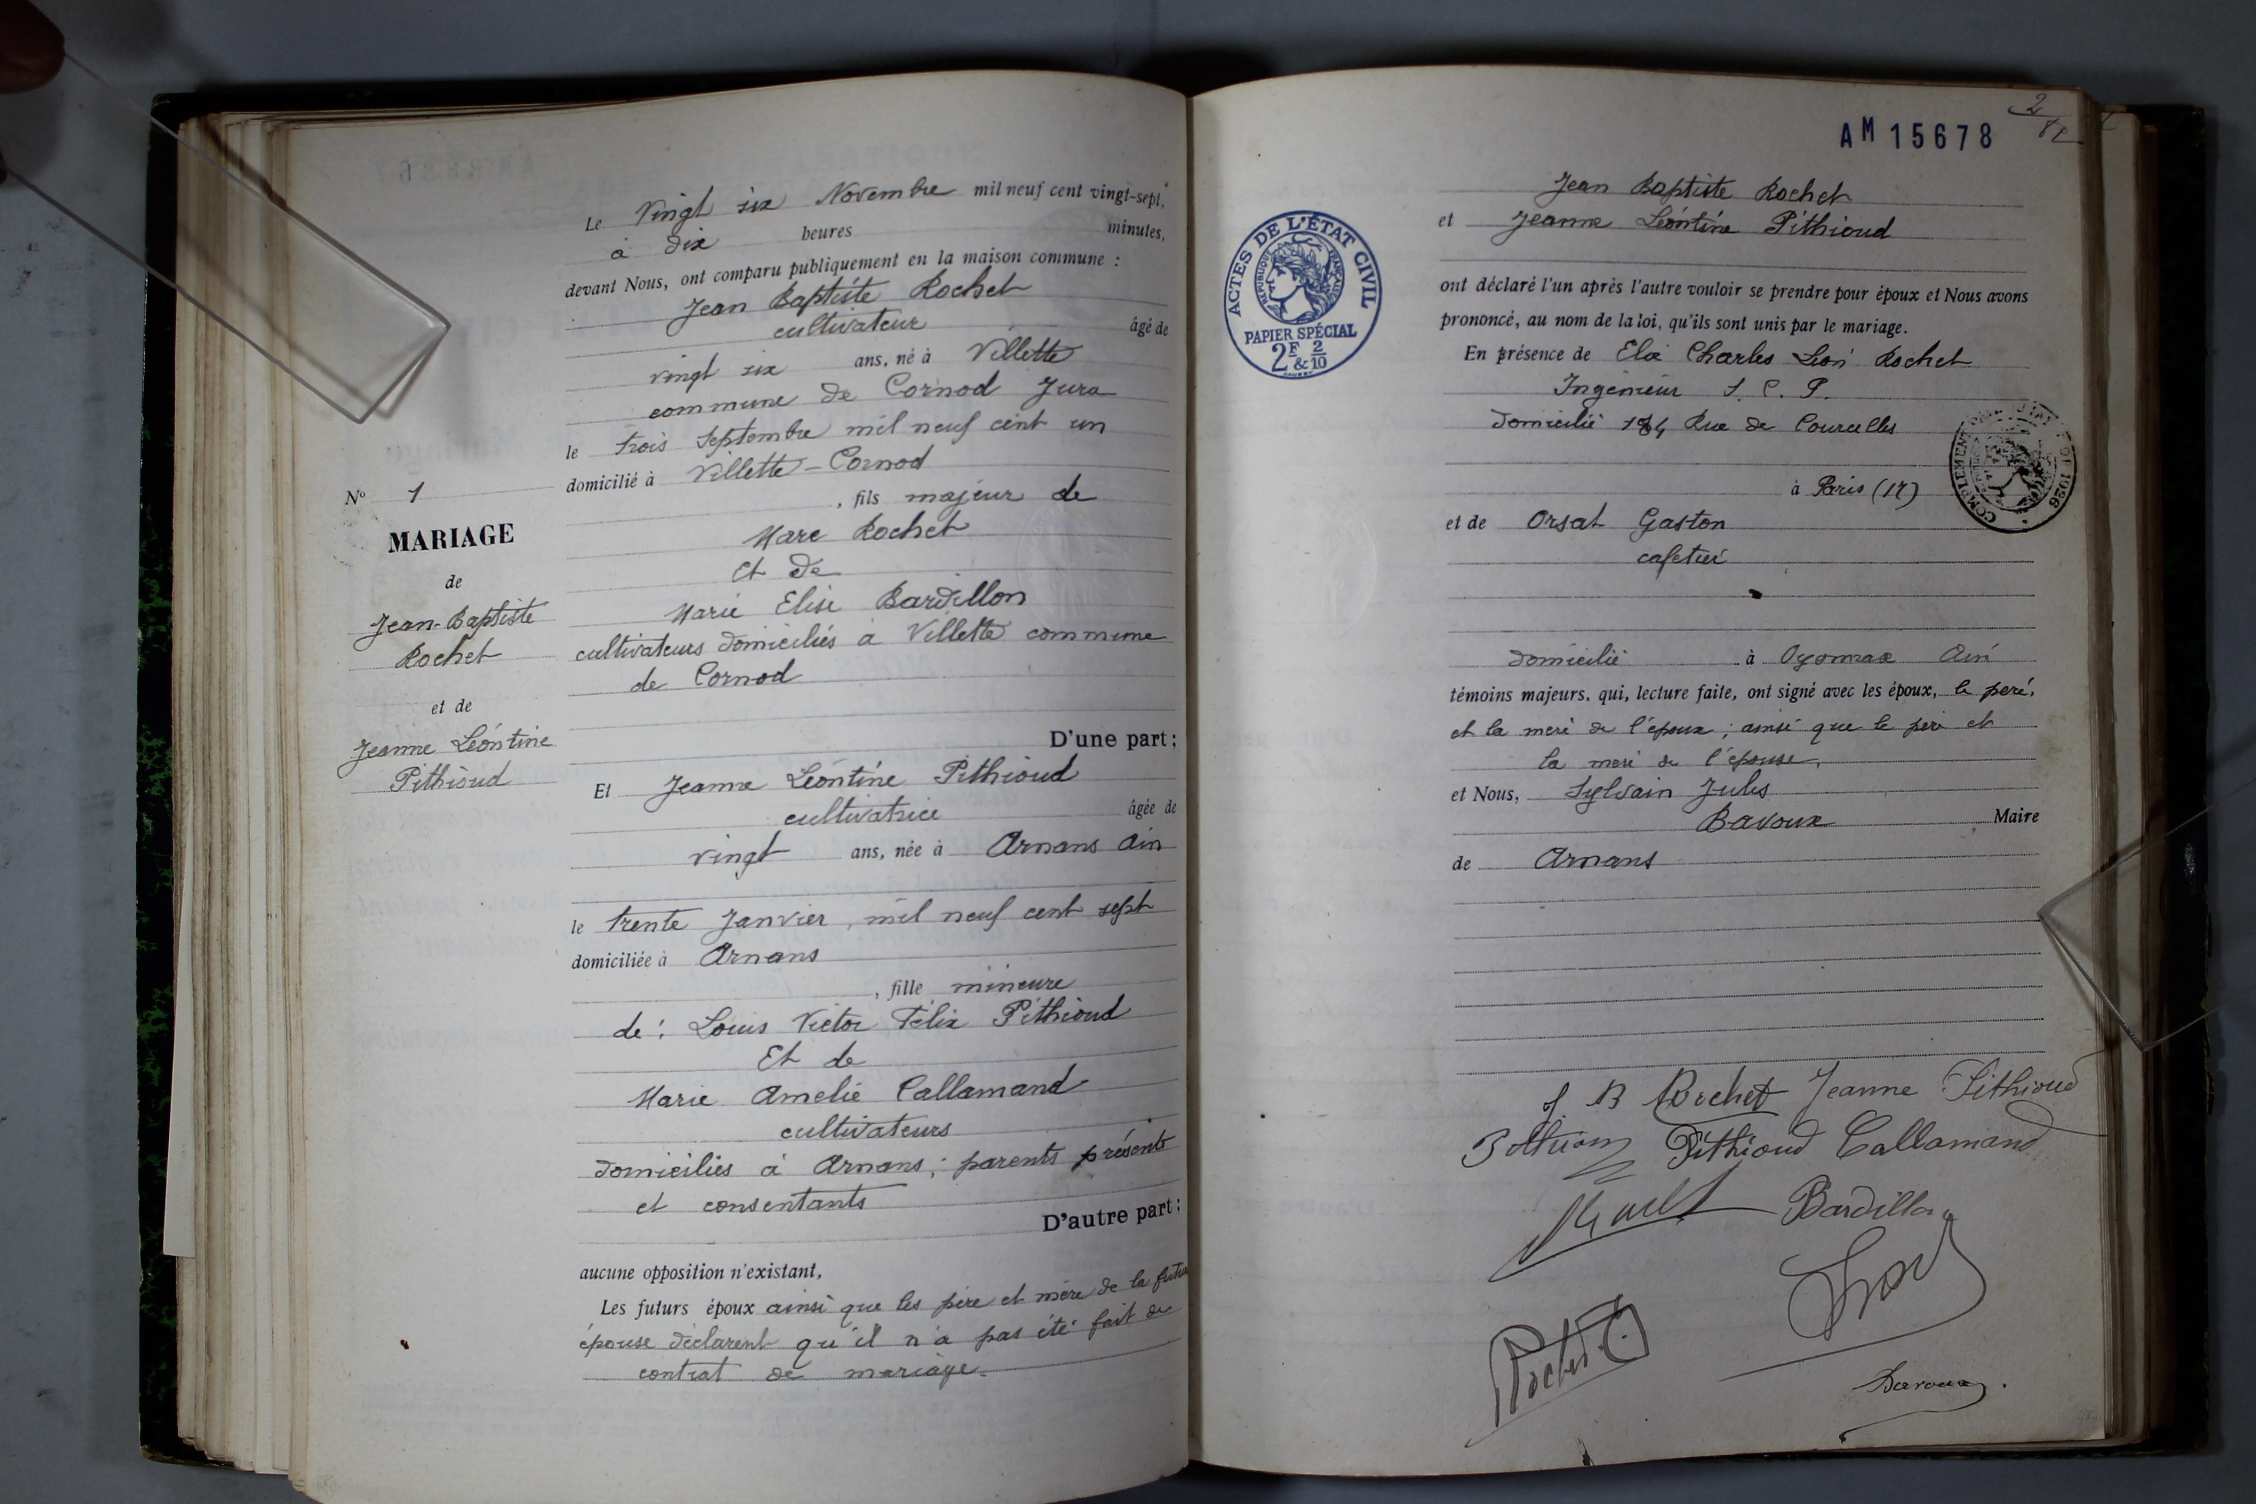 Le Vingt six Novembre mil neuf cent vingt-sept,
à dix heures minutes,
devant Nous, ont comparu publiquement en la maison commune :
Jean Baptiste Rochet
cultivateur âgé de
vingt six ans, né à Villette
commune de Cornod Jura
le trois Septembre mil neuf cent un
domicilié à Villette - Cornod
, fils majeur de
Marc Rochet
et de
Marie Elise Bardillon
cultivateurs domiciliés à Villette commune
de Cornod
D'une part ;
Nº 1
MARIAGE
de
Jean-Baptiste
Rochet
et de
Jeanne Léontine
Pithioud
Et Jeanne Léontine Pithioud
cultivatrice âgée de
vingt ans, née à Arnans Ain
le trente Janvier, mil neuf cent sept
domiciliée à Arnans
, fille mineure
de : Louis Victor Félix Pithioud
Et de
Marie Amelie Callamand
cultivateurs
domiciliés à Arnans ; parents présents
et consentants
D'autre part ;
aucune opposition n'existant,
Les futurs époux ainsi que les père et mère de la future
épouse déclarent qu'il n'a pas été fait de
contrat de mariage.
AM 15678
2
Jean Baptiste Rochet
et Jeanne Léontine Pithioud
ACTES DE L'ÉTAT CIVIL
RÉPUBLIQUE FRANÇAISE
PAPIER SPÉCIAL
2F & 2/10
ont déclaré l'un après l'autre vouloir se prendre pour époux et Nous avons
prononcé, au nom de la loi, qu'ils sont unis par le mariage.
En présence de Charles Léon Rochet
Ingénieur P.
domicilié Rue de Courcelles
à Paris (17)
COMPLÉMENT DE 1926
et de Orsat Gaston
cafetier
domicilié à Oyonnax Ain
témoins majeurs, qui, lecture faite, ont signé avec les époux, le père,
et la mère de l'époux ; ainsi que le père et
la mère de l'épouse,
et Nous, Sylvain Jules
Bavoux Maire
de Arnans
J B Rochet Jeanne Pithioud
Pithioud Callamand
Bardillon
Rochet C.
Bavoux